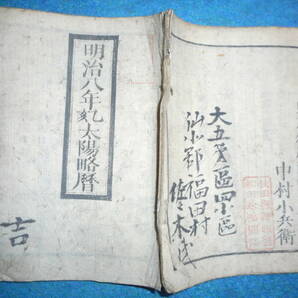 明治八年乙亥太陽略暦
吉
中村小兵衛
大五大區四小區
仙北郡福田村
佐々木氏